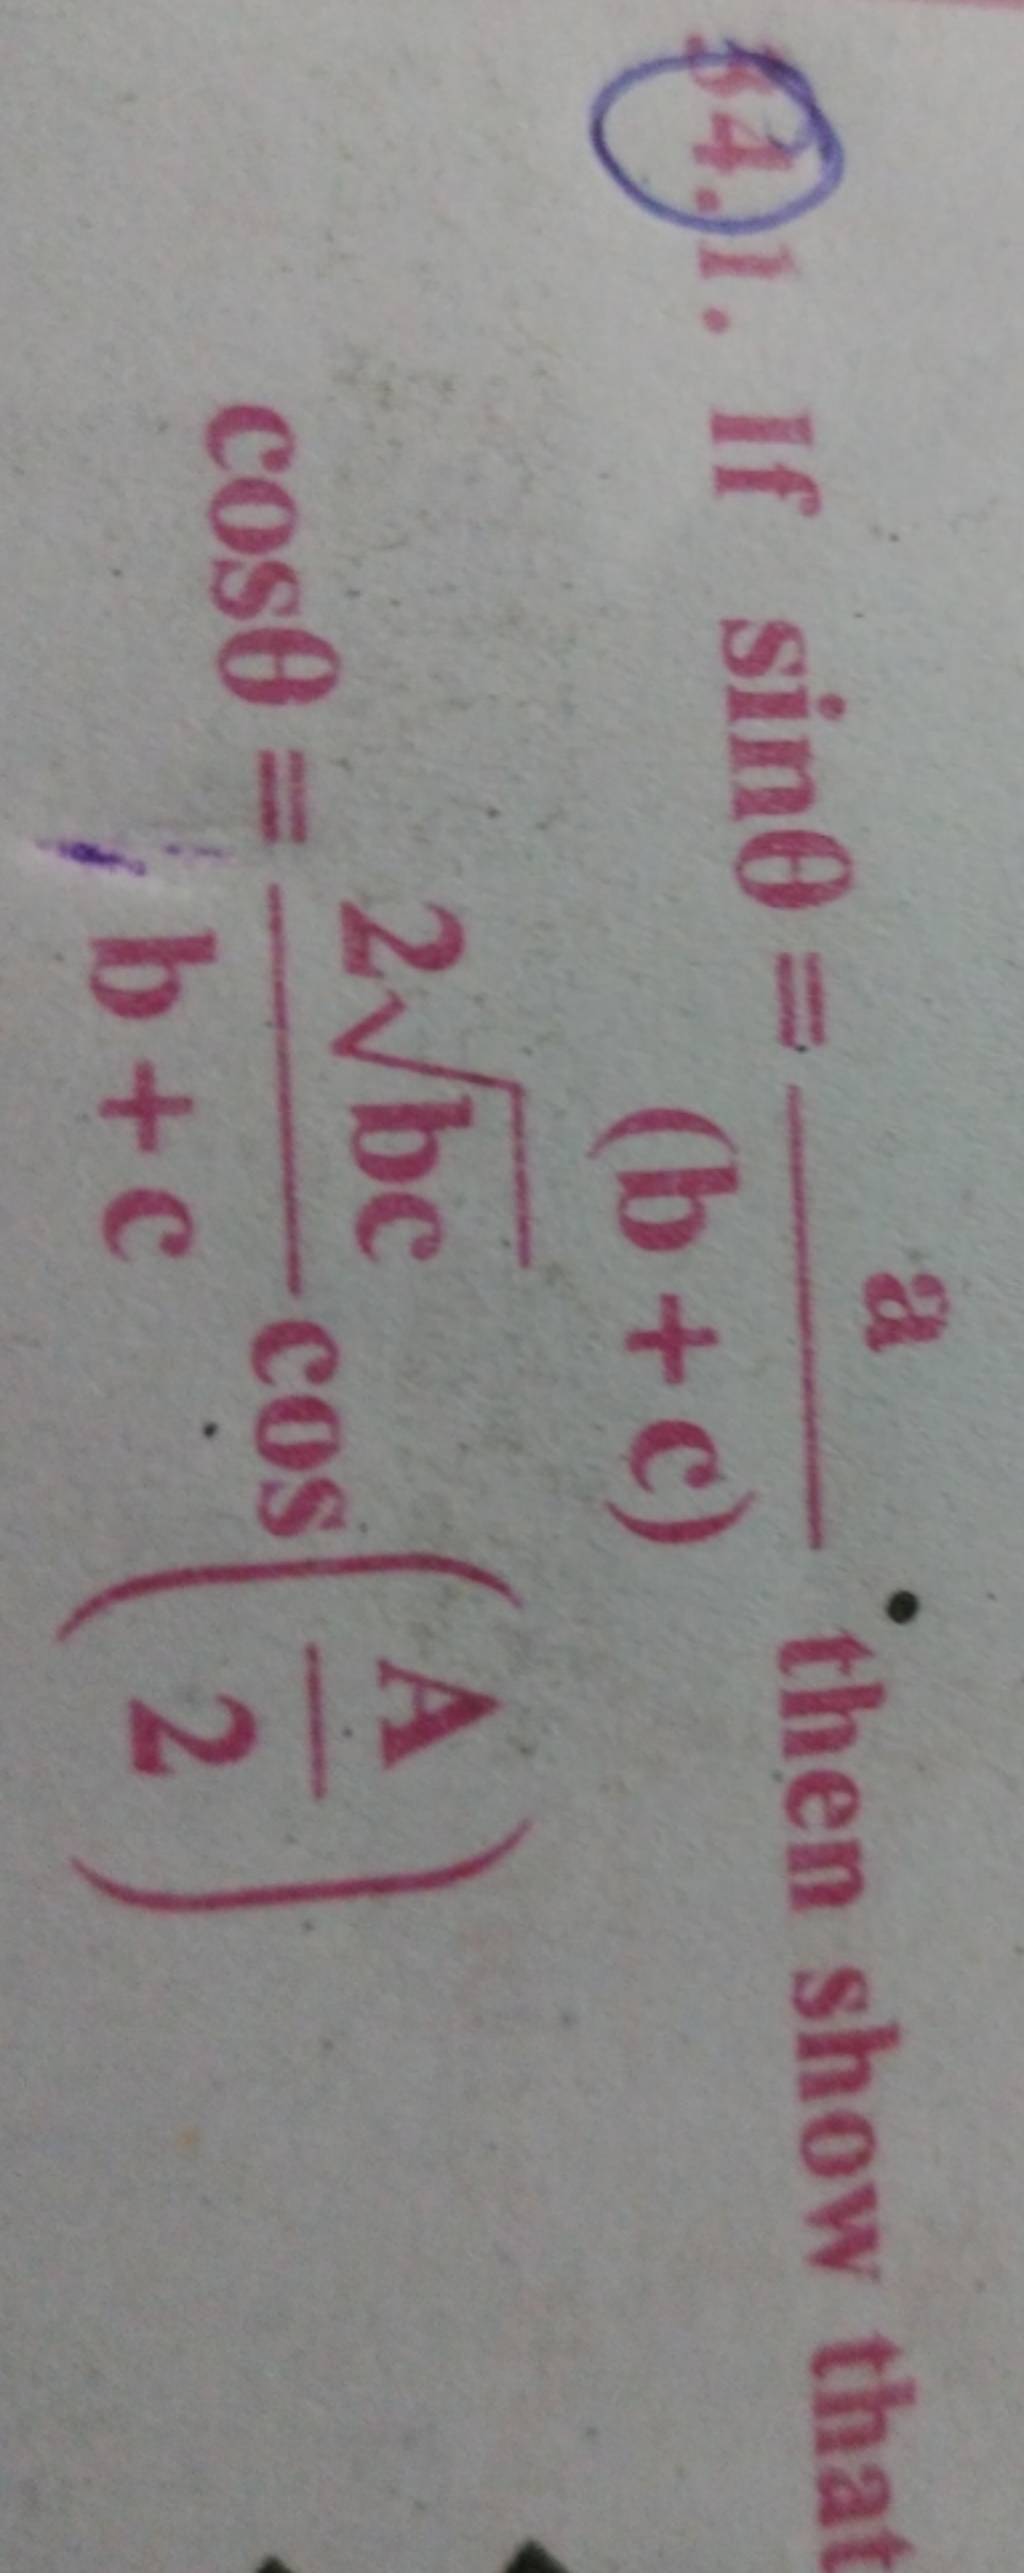 34.1. If sinθ = a/(b + c) then show that
cosθ = 2√bc/b + c cos(A/2)